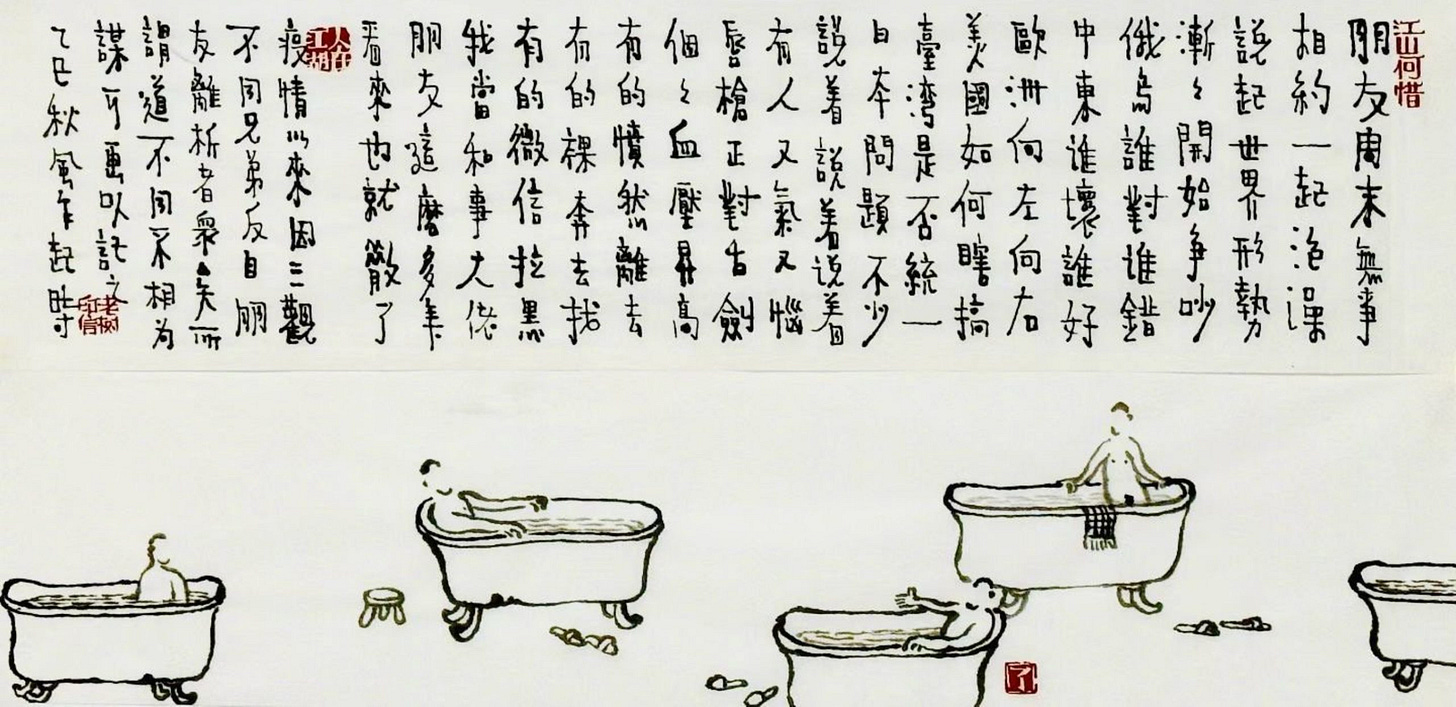 江山何惜
朋友周末無事
相約一起泡澡
説起世界形勢
漸々開始争吵
俄烏誰對谁錯
中東谁壞誰好
歐洲向左向右
美國如何瞎搞
臺灣是否統一
日本問題不少
説着説着说着
有人又氣又惱
唇槍正對舌劍
個々血壓昇高
有的憤然離去
有的裸奔去找
有的微信拉黑
我當和事大佬
朋友這麼多年
看來也就散了
人在江湖
疫情以來因三觀
不同兄弟反目朋
友離析者衆矣所
謂道不同不相為
謀可畫以記之
乙巳秋風乍起時
老树印信
了